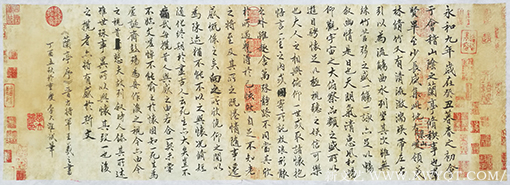 永和九年歲在癸丑暮春之初會
于會稽山陰之蘭亭脩稧事也羣
賢畢至少長咸集此地有崇山峻領茂
林脩竹又有清流激湍暎帶左右
引以為流觴曲水列坐其次雖無
絲竹管弦之盛一觴一詠亦足以暢
叙幽情是日也天朗氣清惠風和暢
仰觀宇宙之大俯察品類之盛所以
遊目騁懷足以極視聽之娛信可樂
也夫人之相與俯仰一世或取諸懷抱
悟言一室之內或因寄所託放浪形骸
之外雖趣舍萬殊靜躁不同當其欣
於所遇暫得於己怏然自足不知老
之將至及其所之既惓情隨事遷
感慨係之矣向之所欣俛仰之間以
為陳迹猶不能不以之興懷況脩短
隨化終期於盡古人云死生亦大矣豈
不痛哉每攬昔人興感之由若合一契未嘗
不臨文嗟悼不能喻之於懷固知一死生為
虛誕齊彭殤為妄作後之視今亦由今
之視昔悲夫故列叙時人錄其所述
雖世殊事異所以興懷其致一也後
之攬者亦將有感於斯文
蘭亭序 晉右將軍王羲之書